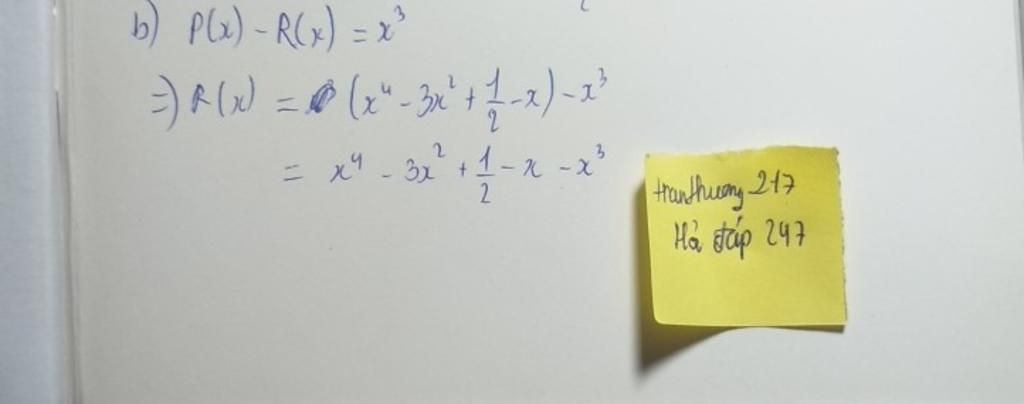 b) P(x) - R(x) = x³
=) R(x) = (x⁴ - 3x² + 1/2 - x) - x³
= x⁴ - 3x² + 1/2 - x - x³
tranthuong 217
Hỏi đáp 247